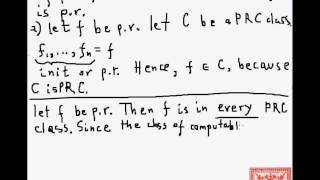 is p.r.
2) let f be p.r. let C be a PRC class.
f₁,...,fₙ = f
init or p.r. Hence, f ∈ C, because
C is PRC.
let f be p.r. Then f is in every PRC
class. Since the class of computabl